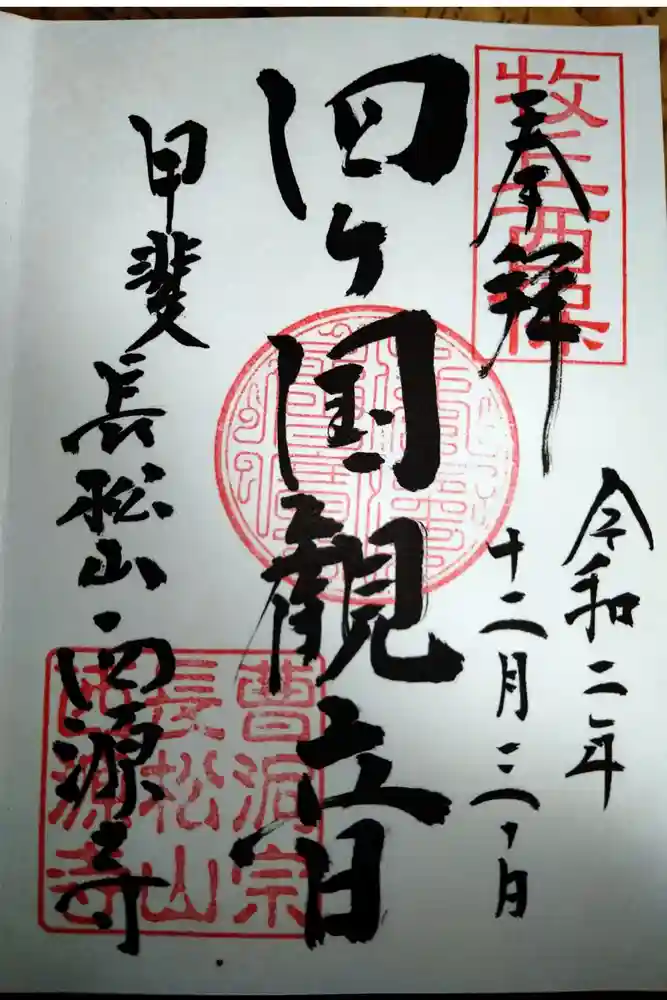 牧丘西保
奉拝
令和二年
十二月三日
四ヶ国観音
甲斐
長松山・西源寺
曹洞宗
長松山
西源寺